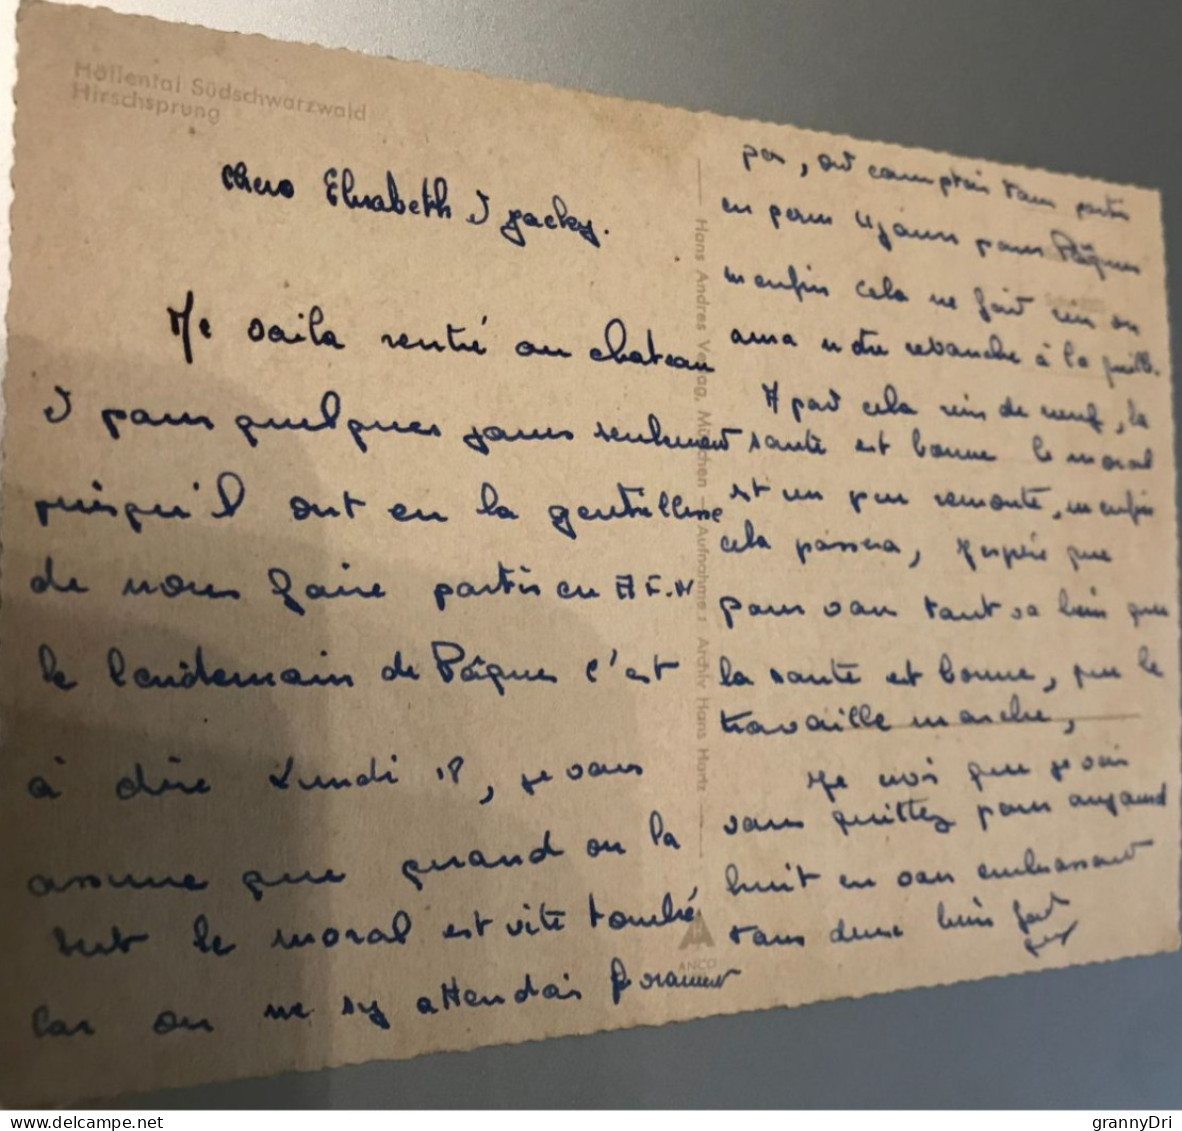 Höllental Südschwarzwald
Hirschsprung
chers Elisabeth & Jacky.
Me voila rentré au chateau
& pour quelques jours seulement
puisqu'il ont eu la gentillesse
de nous faire partir en A F.N
le lendemain de Pâques c'est
à dire Lundi 18, je vous
assure que quand on la
sut le moral est vite tombé,
car on ne s'y attendais vraiment
pas, ont comptais tous partir
en perm 4 jours pour Pâques
m'enfin cela ne fait rien on
aura notre revanche à la quille.
A part cela rien de neuf, la
santé est bonne le moral
est un peu remonté, m'enfin
cela passera, j'espère que
pour vous tout va bien que
la santé est bonne, que le
travaille marche,
Je crois que je vais
vous quittez pour aujourd
huit en vous embrassant
tous deux bien fort
Hans Andres Verlag, München – Aufnahme: Archiv Hans Hartz
ANCO
grannyDri